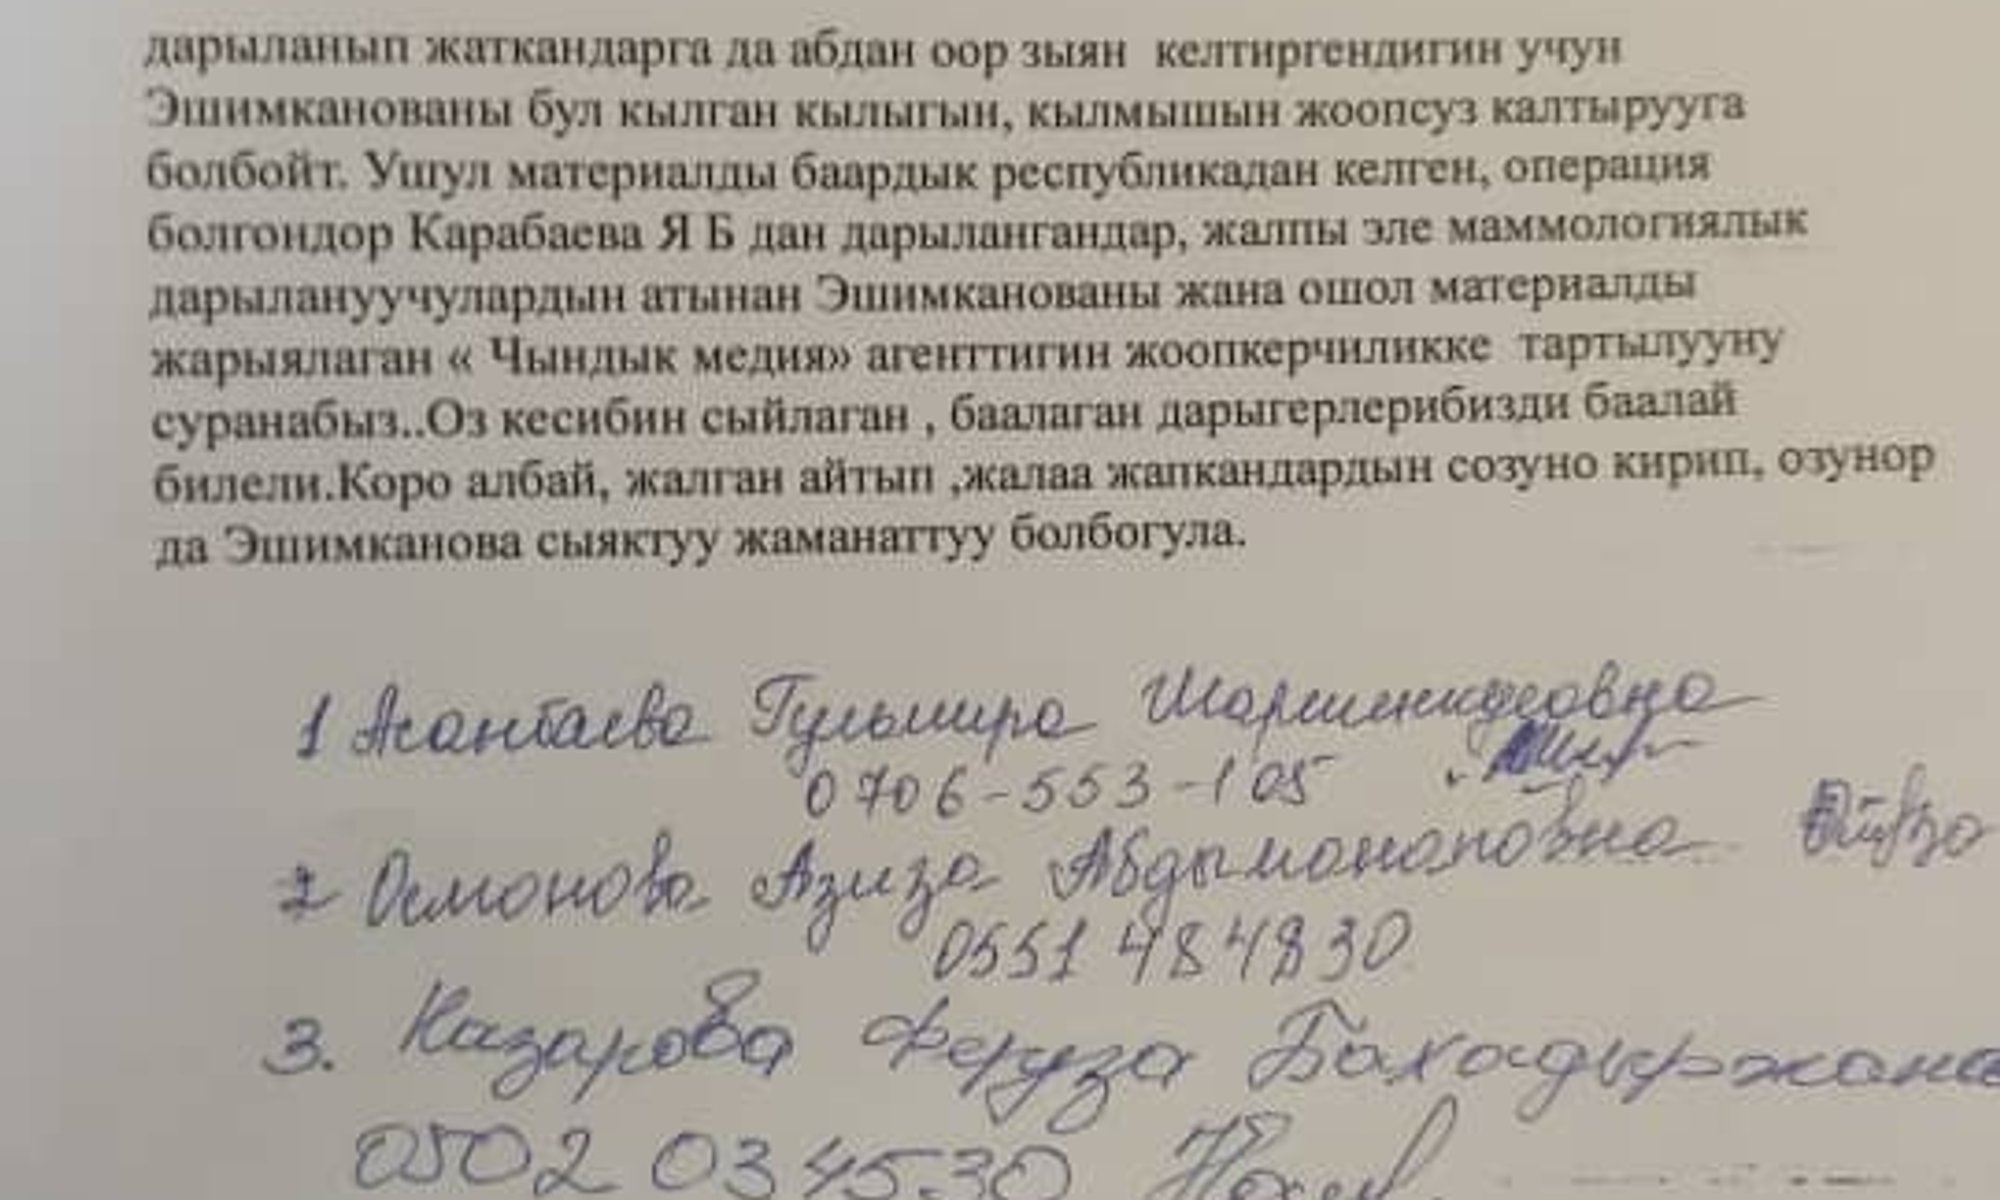 дарыланып жаткандарга да абдан оор зыян келтиргендигин учун
Эшимканованы бул кылган кылыгын, кылмышын жоопсуз калтырууга
болбойт. Ушул материалды баардык республикадан келген, операция
болгондор Карабаева Я Б дан дарылангандар, жалпы эле маммологиялык
дарылануучулардын атынан Эшимканованы жана ошол материалды
жарыялаган « Чындык медия» агенттигин жоопкерчиликке тартылууну
суранабыз..Оз кесибин сыйлаган , баалаган дарыгерлерибизди баалай
билели.Коро албай, жалган айтып ,жалаа жапкандардын созуно кирип, озунор
да Эшимканова сыяктуу жаманаттуу болбогула.
1 Асанбаева Гульмира
0706-553-105
2 Осмонова Азиза Абдыманаповна
0551 484830
3. Назарова Феруза Бахадыржана
0502 034530